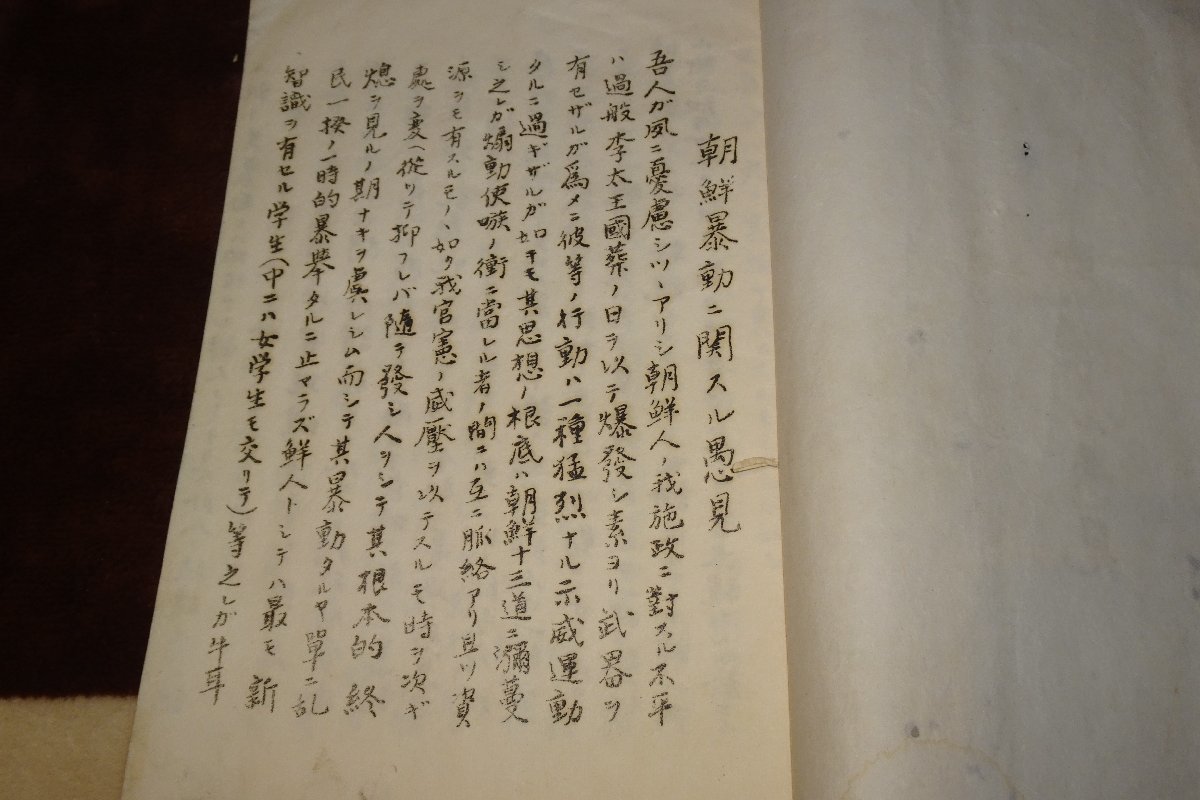 朝鮮暴動ニ関スル愚見
吾人ガ夙ニ憂慮シツヽアリシ朝鮮人ノ我施政ニ對スル不平
ハ過般李太王國葬ノ日ヲ以テ爆發シ素ヨリ武器ヲ
有セザルガ爲メニ彼等ノ行動ハ一種猛烈ナル示威運動
タルニ過ギザルガ如キモ其思想ノ根底ハ朝鮮十三道ニ瀰蔓
シ之レガ煽動使嗾ノ衝ニ當レル者ノ間ニハ互ニ脈絡アリ且ツ資
源ヲモ有スルモノヽ如ク我官憲ノ威壓ヲ以テスルモ時ヲ次ギ
處ヲ変ヘ従リテ抑フレバ随テ發シ人ヲシテ其根本的終
熄ヲ見ルノ期ナキヲ虞レシム而シテ其暴動タルヤ單ニ乱
民一揆ノ一時的暴挙タルニ止マラズ鮮人トシテハ最モ新
智識ヲ有セル学生(中ニハ女学生モ交リテ)等之レガ牛耳